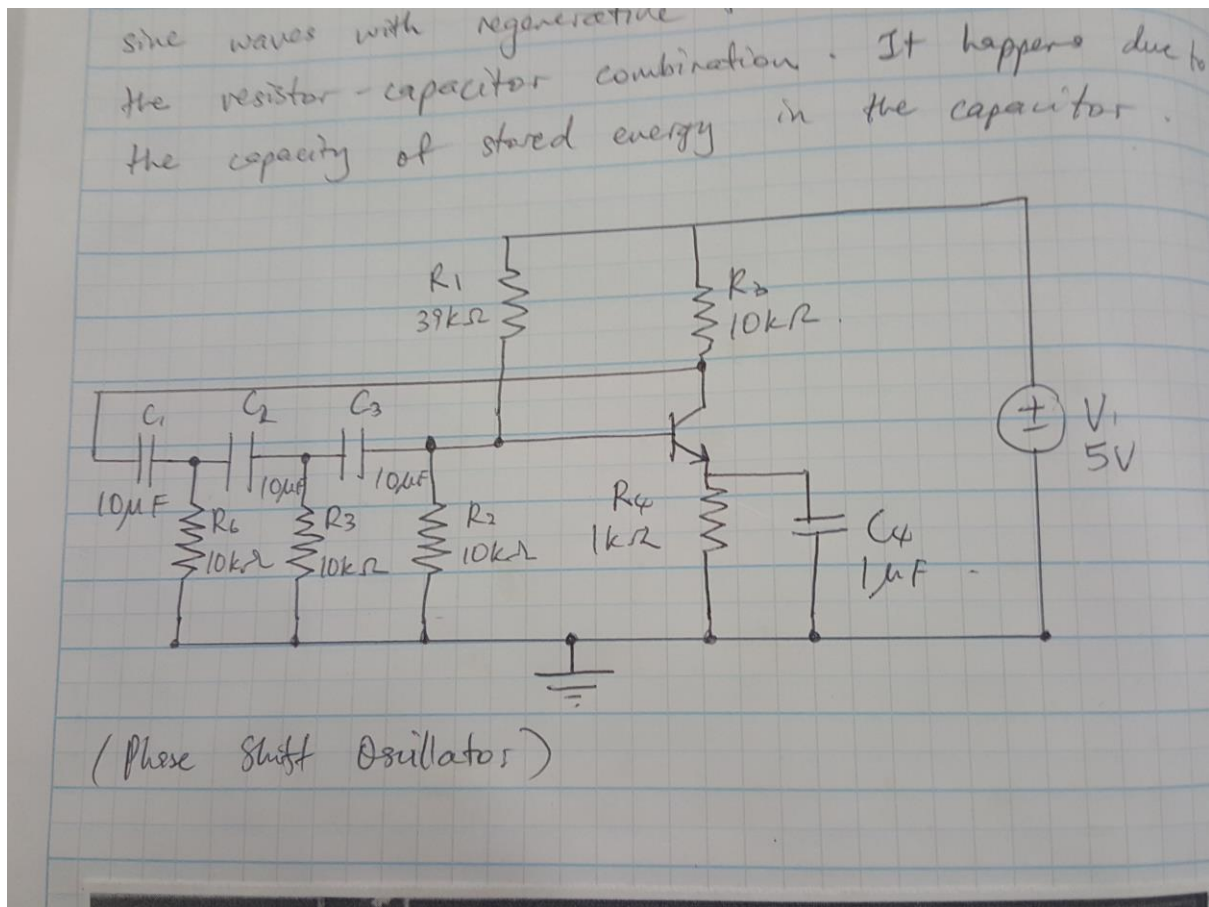 sine waves with regenerative
the resistor-capacitor combination. It happens due to
the capacity of stored energy in the capacitor.
R1
39kΩ
10kΩ
C1
C2
C3
10μF
10μF
10μF
V1
5V
R6
10kΩ
R3
10kΩ
R2
10kΩ
R4
1kΩ
C4
1μF
(Phase Shift Oscillator)